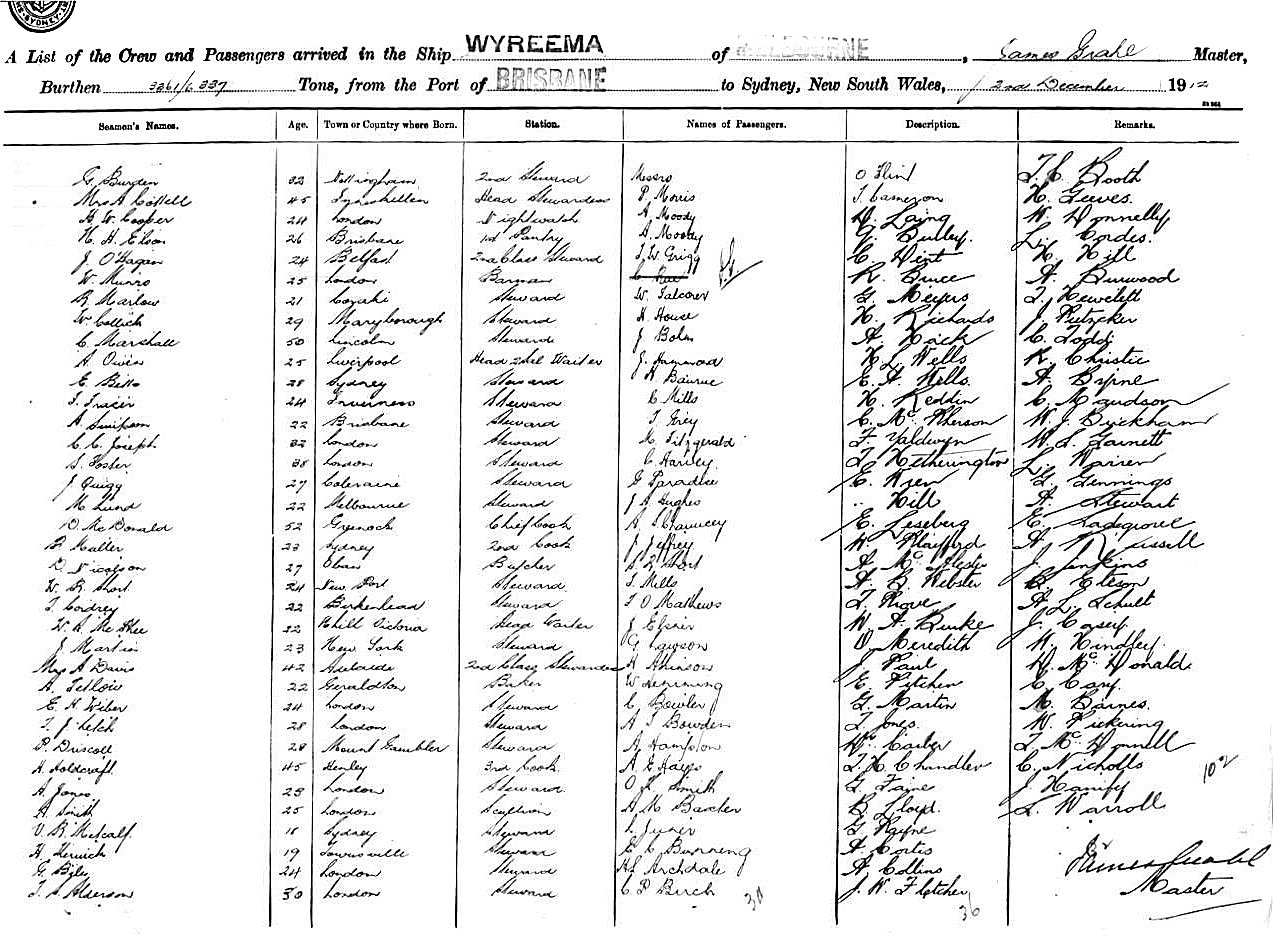 SYDNEY
A List of the Crew and Passengers arrived in the Ship WYREEMA of MELBOURNE, James Grahl Master,
Burthen 3361/6337 Tons, from the Port of BRISBANE to Sydney, New South Wales, 2nd December 1912
Seamen's Names. Age. Town or Country where Born. Station. Names of Passengers. Description. Remarks.
G. Burden 32 Nottingham 2nd Steward Messrs O Flint T. C. Booth
Mrs A Cottell 45 Head Stewardess P. Morris J. Cameron H. Geeves.
H. W. Cooper 24 London Nightwatch A. Moody D. Laing W. Donnelly
H. H. Elson 26 Brisbane 1st Pantry A. Moody G. Burley. L. Cordes.
J. O'Hagan 24 Belfast 2nd Class Steward T. W. Grigg C. Dint H. Hill
W. Munro 25 London Barman R. Bruce A. Burwood
R. Marlow 21 Steward W. Falconer G. Meyers T. Hewelett
W. Collick 29 Maryborough Steward H House H. Richards J. Putzcker
C. Marshall 50 Lincoln Steward J. Bohn A. Hack C. Todd
A Owen 25 Liverpool Head 2nd Cl Waiter J. Hammond H. L. Wells R. Christie
E. Betts 28 Sydney Steward H Bourne E. A. Wells. A. Byrne
T. Frazer 24 Inverness Steward C Mills H. Reddin C. Maudson
A Simpson 22 Brisbane Steward T. Grey C. McPherson W. J. Brickham
C. C. Joseph 32 London Steward M. Fitzgerald F. Valdwyn W. L. Garnett
S. Foster 38 London Steward C. Harvey. T. Hetherington L. Warren
J Quigg 27 Coleraine Steward G Paradise E. Wren L. Jennings
M Lund 22 Melbourne Steward J A Hughes .. Hill A. Stewart
D McDonald 52 Greenock Chief Cook A. S. Chauncey E. Leseberg E. Ladegrove
B Muller 23 Sydney 2nd Cook J Jeffrey W. Playford A Russell
D Nicolson 27 Oban Butcher S R Short A McAlester J. Jenkins
W. R. Short 24 New Port Steward T. Mills A. B. Webster B. Eteson
T. Cordrey 22 Birkenhead Steward T O Mathews T. Prove A L. Schult
W. A. McPhee 22 Rhill Victoria Head Waiter J Elfair W. A. Burke J. Casey.
J Martin 23 New York Steward G Lawson O. Meredith W. Hindley.
Mrs A Davis 42 Adelaide 2nd Class Stewardess H Atkinson J. Paul D. McDonald.
A. Tetlow 22 Geraldton Baker W Lemming E. Pitcher C Cary.
E. H Wiber 24 London Steward C Bowler G. Martin M. Barnes.
T. J. Letch 28 London Steward A J Bowden T. Jones. W. Pickering
P. Driscoll 28 Mount Gambier Steward A Hampton W. Carter T. McDonnell
H. Holdcraft. 45 Henley 3rd Cook. A G Hays T. H. Chandler C. Nicholls
A. Jones 23 London Steward O L Smith G. Faine J. Hanify
A. Smith 25 London Scullion A M Barcher B. Lloyd. L. Warroll
V. R. Metcalf 18 Sydney Steward L Juner G Rayne
H. Herwick 19 Steward E C Burning A. Cortis
G. Biles 24 London Steward H L Archdale A Collins
T. A. Alderson 30 London Steward C P Birch J. W. Fletcher
34 36
102
James Grahl
Master